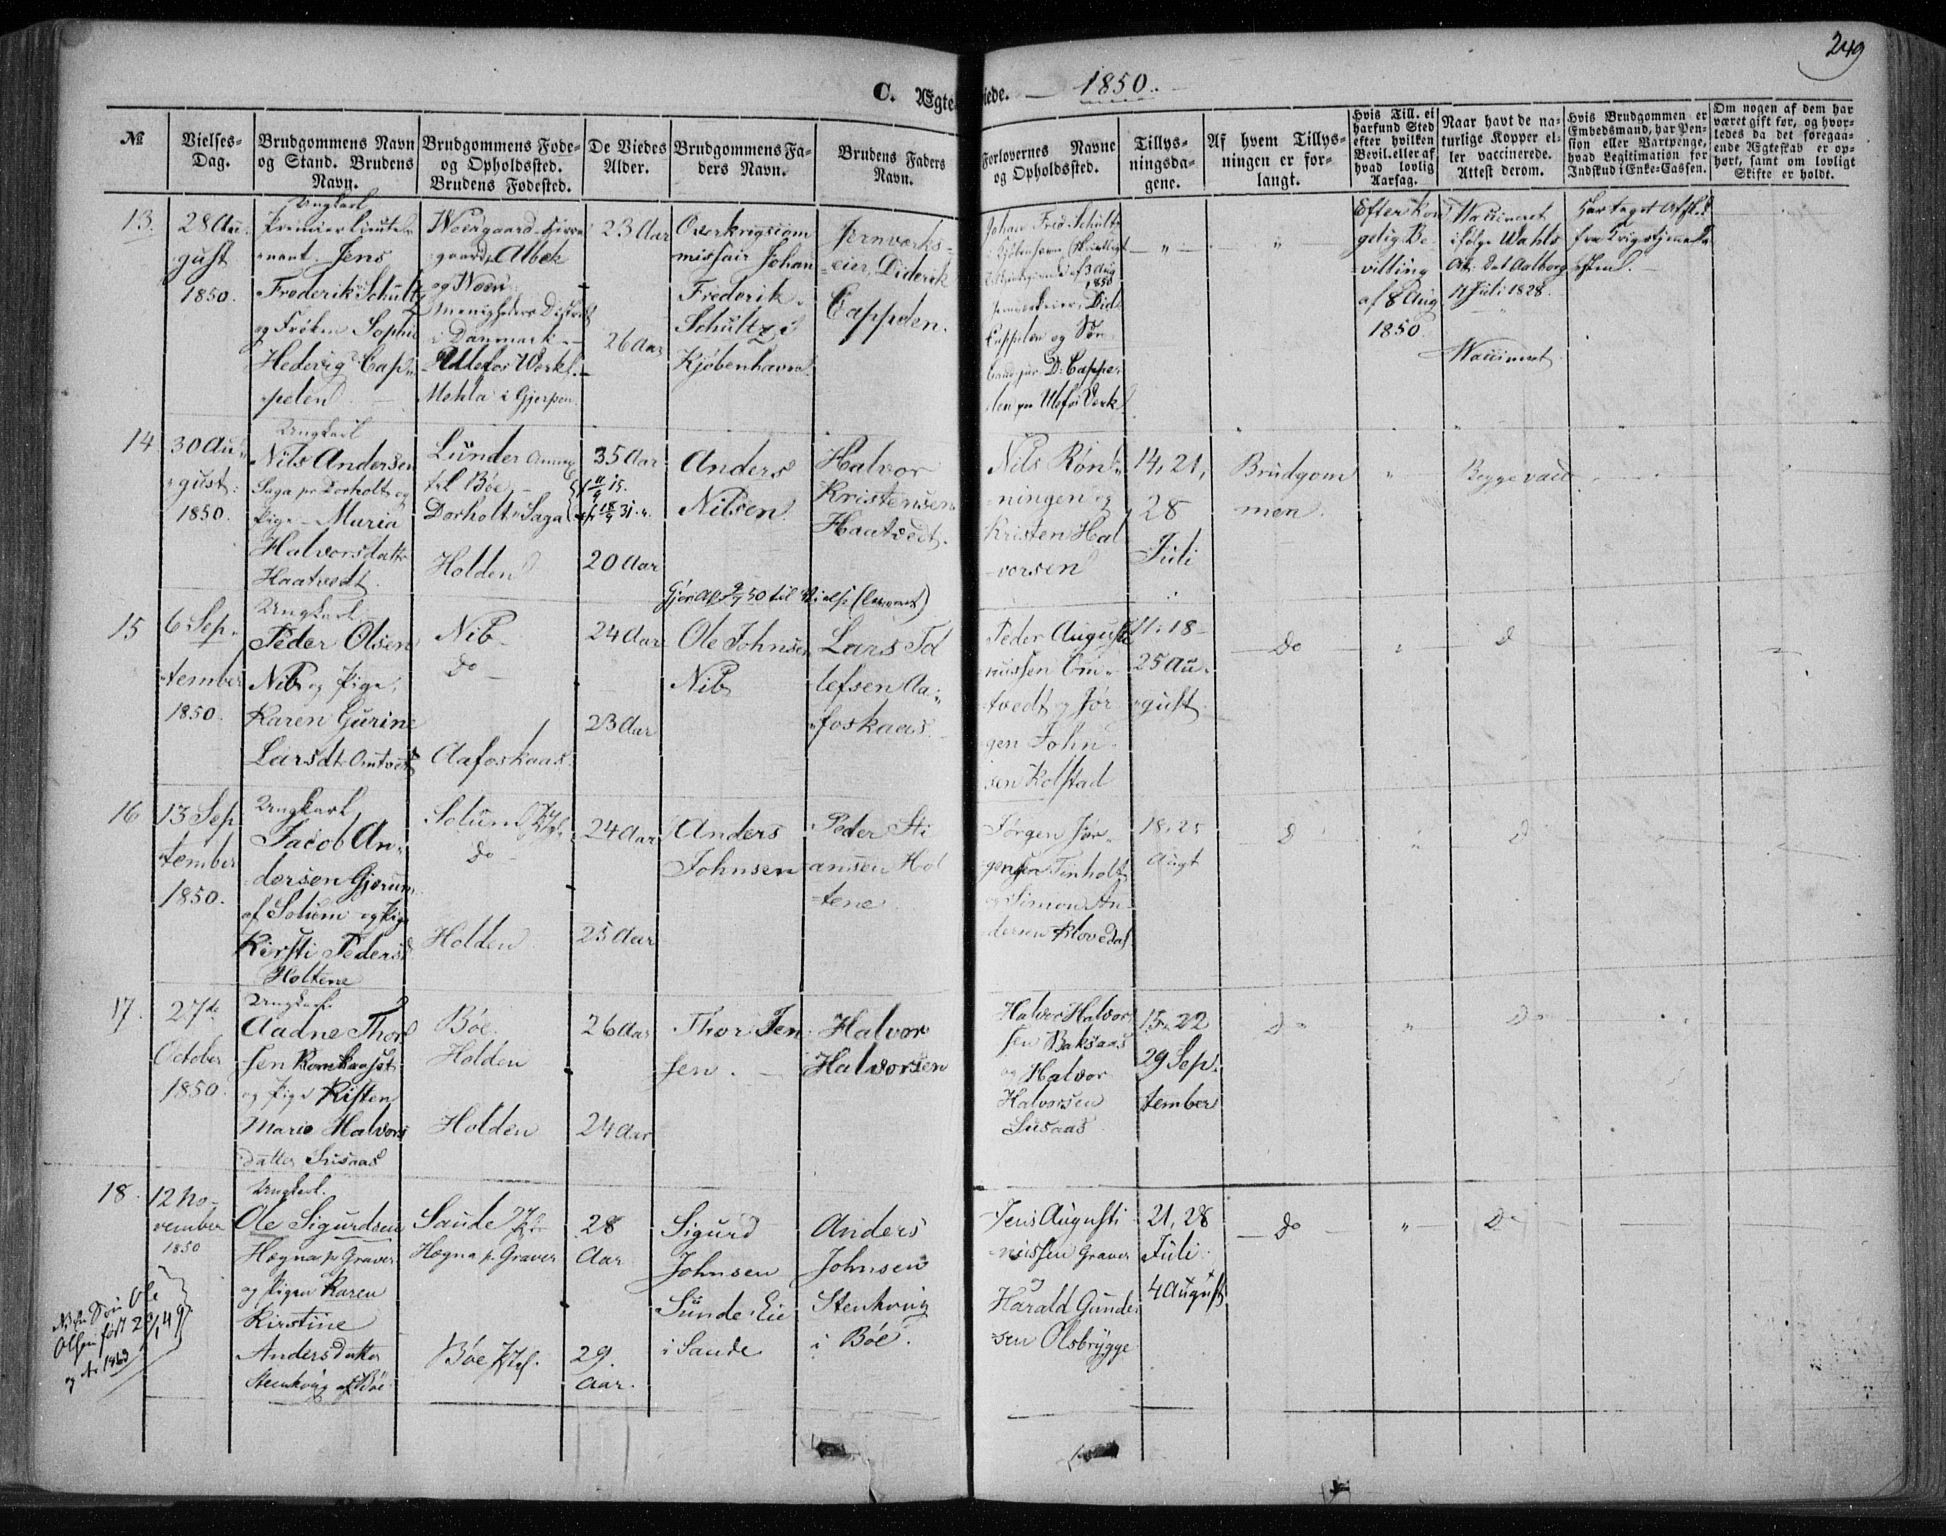 249
C. Ægteviede. — 1850. —
№
Vielses-
Dag.
Brudgommens Navn
og Stand. Brudens
Navn.
Brudgommens Føde-
og Opholdssted.
Brudens Fødested.
De Viedes
Alder.
Brudgommens Fa-
ders Navn.
Brudens Faders
Navn.
Forlovernes Navne
og Opholdssted.
Tillys-
ningsda-
gene.
Af hvem Tillys-
ningen er for-
langt.
Hvis Till. ei
harfund Sted
efter hvilken
Bevil. eller af
hvad lovlig
Aarsag.
Naar havt de na-
turlige Kopper el-
ler vaccinerede.
Attest derom.
Hvis Brudgommen er
Embedsmand, har Pen-
sion eller Vartpenge,
hvad Legitimation for
Indskud i Enke-Cassen.
Om nogen af dem har
været gift før, og hvor-
ledes da det foregaa-
ende Ægteskab er op-
hørt, samt om lovligt
Skifte er holdt.
13.
28 Au-
gust
1850.
Ungkarl
Premier Lieute-
nant Jens
Frederik Schultz
og Frøken Sophie
Hedevig Cap-
pelen.
Albek
og
Menigheders District
i Danmark
Ulefos Werk
i Gjerpen
23 Aar
26 Aar
Overkrigscom
missair Johan
Frederik
Schultz i
Kjøbenhavn
Jernværks-
eier Diderik
Cappelen.
Johan Fred. Schultz
Kjøbenhavn
af 3 Aug
1850
Did.
Cappelen og Søn
D. Cappe-
len pr Ulefos Værk
„
„
Efter Kon
gelig Be-
villing
af 8 Aug
1850.
Vaccineret
ifølge Wahls
At: dat Aalborg
11 Juli 1828.
Vaccineret
Har taget Afsked
fra Krigstjeneste
14
30 Au-
gust
1850.
Ungkarl
Nils Andersen
Saga pr Dorholt og
Pige Maria
Halvorsdatter
Haatvedt.
Lunder Annex
til Bøe
Dorholt Saga
Holden
35 Aar
20 Aar
Anders
Nilsen
Halvor
Kristensen
Haatvedt.
Nils Røn-
ningen og
Kristen Hal
vorsen
14, 21,
28
Juli
Brudgom
men.
„
Begge vacc.
15
6 Sep-
tember
1850.
Ungkarl
Peder Olsen
Nib og Pige
Karen Gurine
Larsdt. Omtvedt
Nib
do
Aafoskaas
24 Aar
23 Aar
Ole Johnsen
Nib
Lars Td
lefsen Aa-
foskaas.
Peder Augusti
nussen Om-
tvedt og Jør
gen John-
sen Kolstad
11, 18
25 Au-
gust
Do
„
D
16
13 Sep
tember
1850.
Ungkarl
Jacob An-
dersen Gjerum
af Solum og Pige
Kirsti Pedersd
Holtene
Solum
do
Holden
24 Aar
25 Aar
Anders
Johnsen
Peder Sti
ansen Hol
tene
Jørgen Jør-
gensen Tinholt
og Simon An-
dersen Klovedal
18, 25
Augt
D
„
D
17.
27de
October
1850.
Ungkarl
Aadne Thor
sen Romkaaset
og Pige Kisten
Marie Halvors
datter Susaas
Bøe
Holden
Holden
26 Aar
24 Aar
Thor Jen
sen.
Halvor
Halvorsen
Halvor Halvor-
sen Baksaas
og Halvor
Halvorsen
Susaas
15, 22
29 Sep-
tember
Do
„
Do
18.
12 No-
vember
1850
Ungkarl.
Ole Sigurdsen
Hægna p. Graver
og Pigen Karen
Kirstine
Andersdatter
Stenhvig af Bøe
Saude
Hægna p. Graver
Bøe
28
Aar
29.
Aar.
Sigurd
Johnsen
Sunde Eie
i Saude
Anders
Johnsen
Stenhvig
i Bøe.
Jens Augusti
nussen Graver
og
Harald Gunde
sen Olsbrygge
21, 28
Juli
4 August
Do
„
Do
Søn Ole
Olsen født